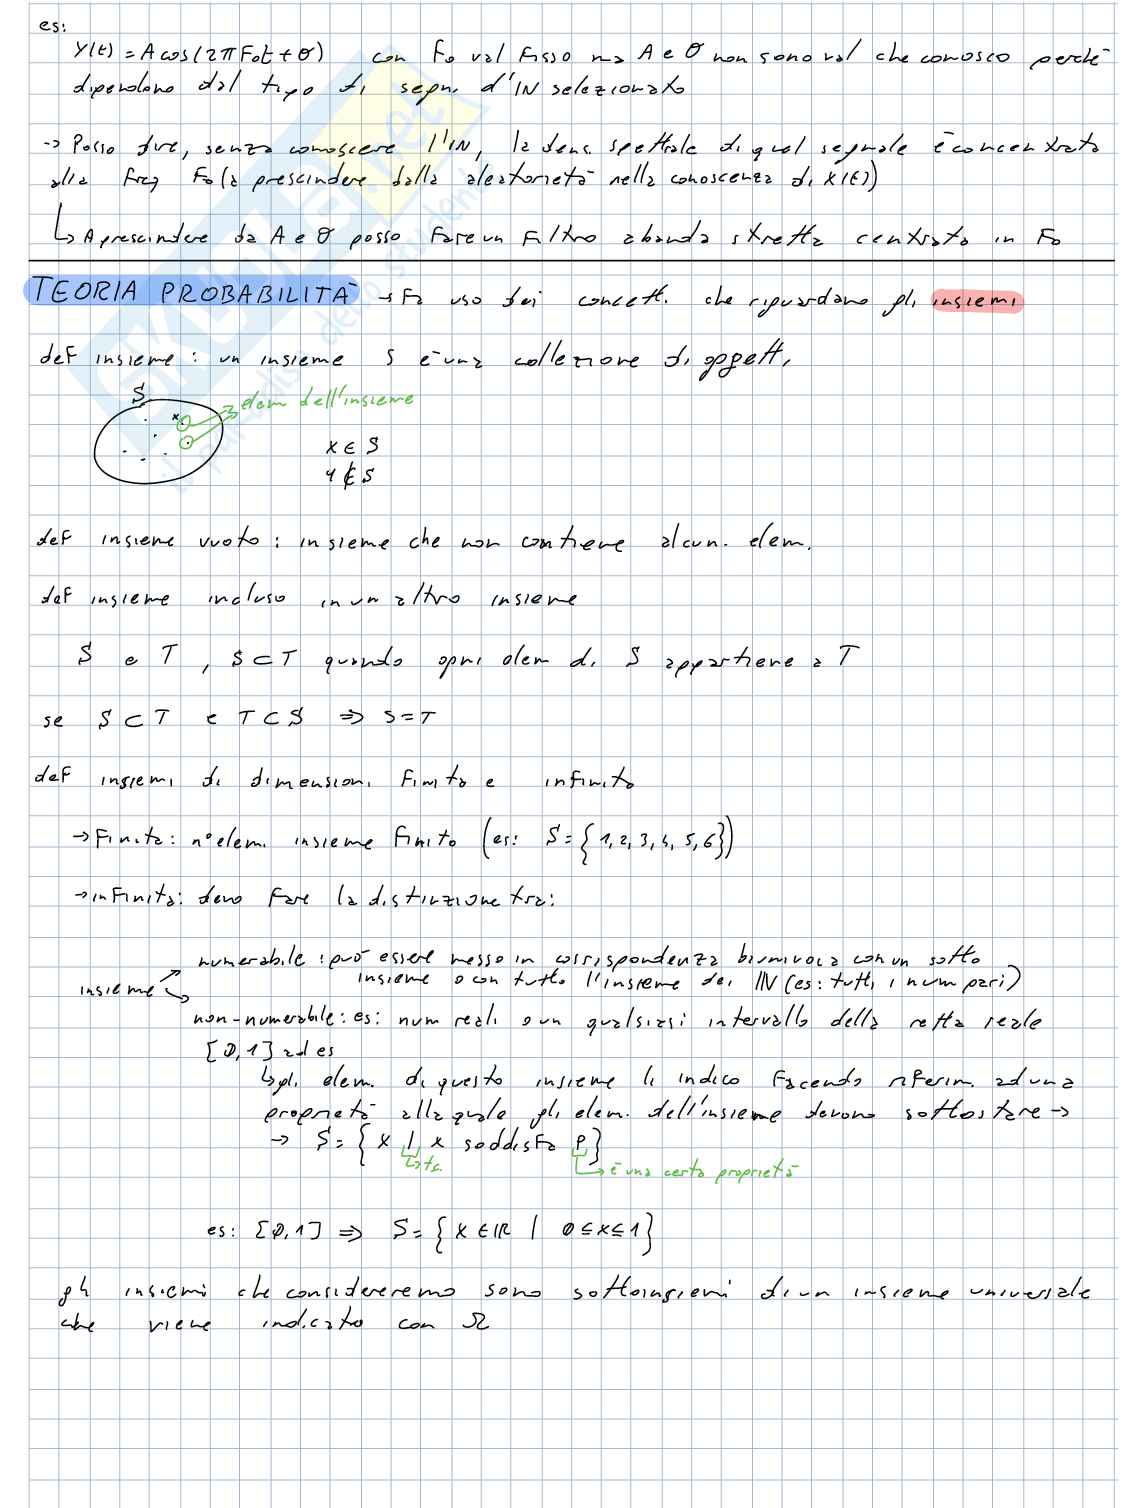 es:
Y(t) = A cos(2πF0t + θ) con F0 val fisso ma A e θ non sono val che conosco perché
dipendono dal tipo di segn. d'IN selezionato
-> Posso dire, senza conoscere l'IN, la dens. spettrale di quel segnale è concentrata
alla freq F0 (a prescindere dalla aleatorietà nella conoscenza di X(t))
↳ A prescindere da A e θ posso fare un filtro a banda stretta centrato in F0
TEORIA PROBABILITÀ → Fa uso dei concetti che riguardano gli insiemi
def insieme: un insieme S è una collezione di oggetti
S
x
elem dell'insieme
x ∈ S
y ∉ S
def insieme vuoto: insieme che non contiene alcun. elem.
def insieme incluso in un altro insieme
S e T, S ⊂ T quando ogni elem di S appartiene a T
se S ⊂ T e T ⊂ S ⇒ S = T
def insiemi di dimensioni finita e infinito
→ Finita: n° elem. insieme finito (es: S = {1, 2, 3, 4, 5, 6})
→ infinita: devo fare la distinzione tra:
numerabile: può essere messo in corrispondenza biunivoca con un sotto
insieme o con tutto l'insieme dei ℕ (es: tutti i num pari)
insieme
non-numerabile: es: num reali o un qualsiasi intervallo della retta reale
[0, 1] ad es
↳ gli elem. di questo insieme li indico facendo riferim. ad una
proprietà alla quale gli elem. dell'insieme devono sottostare →
→ S = {x | x soddisfa P}
↳ t.c.
↳ è una certa proprietà
es: [0, 1] ⇒ S = {x ∈ ℝ | 0 ≤ x ≤ 1}
gli insiemi che considereremo sono sottoinsiemi di un insieme universale
che viene indicato con Ω
SKUOLA.net
il portale dello studente